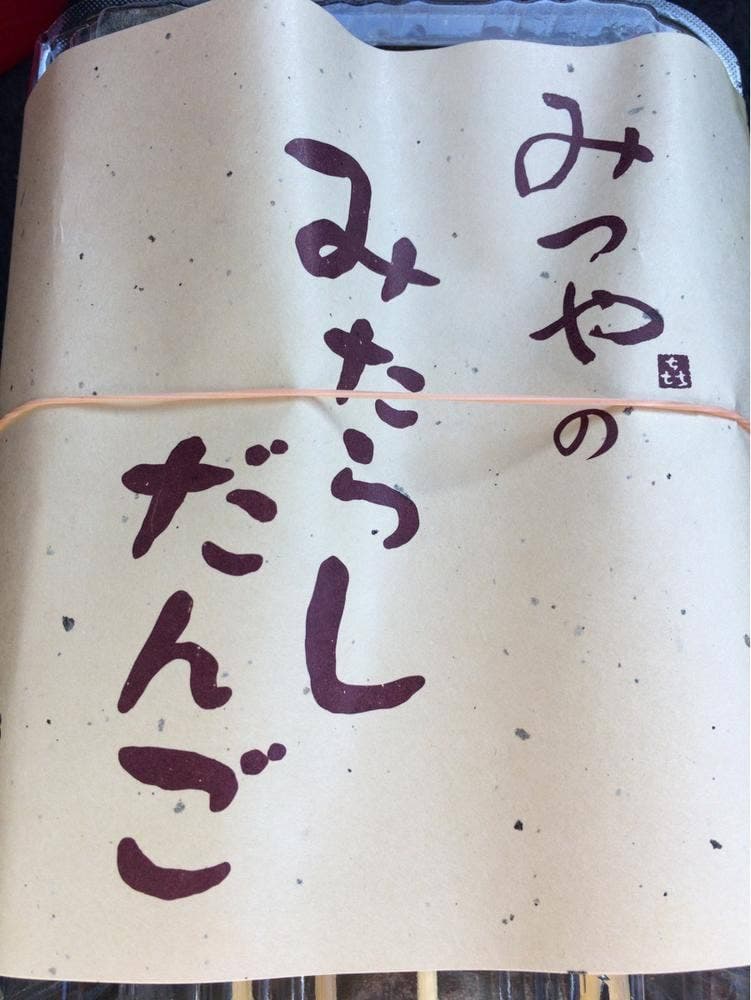 みつやの
みたらし
だんご